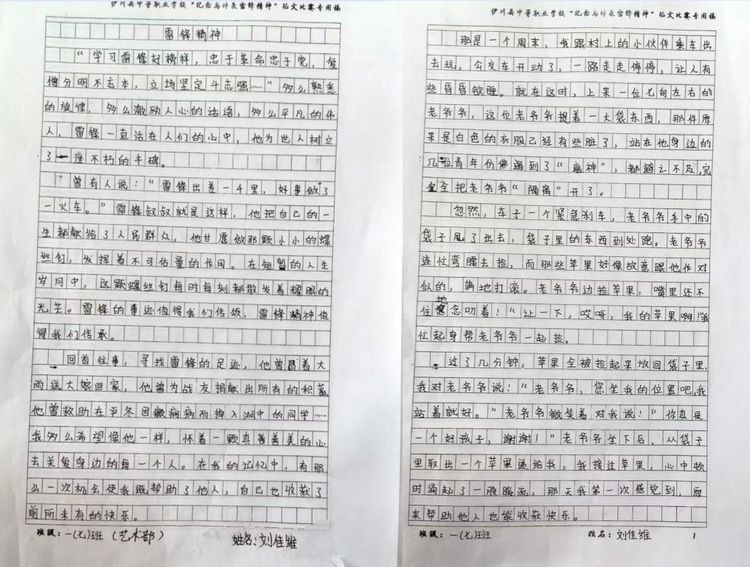 伊川县中等职业学校“纪念与传承雷锋精神”征文比赛专用稿
雷锋精神
“学习雷锋好榜样,忠于革命忠于党,爱
憎分明不忘本,立场坚定斗志强……”多么熟悉
的旋律,多么激励人心的话语,多么平凡的伟
人,雷锋一直活在人们的心中,他为世人树立
了一座不朽的丰碑。
曾有人说:“雷锋出差一千里,好事做了
一火车。”雷锋叔叔就是这样,他把自己的一
生都献给了人民群众,他甘愿做那颗小小的螺
丝钉,发挥着不可估量的作用。在短暂的人生
岁月中,这颗螺丝钉每时每刻都散发着耀眼的
光生。雷锋的事迹值得我们传颂,雷锋精神值
得我们传承。
回首往事,寻找雷锋的足迹,他曾冒着大
雨送大娘回家,他曾为战友捐献出所有的积蓄,
他曾救助在严冬因癫痫病而掉入湖中的同学……
我多么希望像他一样,怀着一颗真善美的心
去关爱身边的每一个人。在我的记忆中,有那
么一次机会使我既帮助了他人,自己也收获了
前所未有的快乐。
班级:一(七)班(艺术部) 姓名:刘佳雅
伊川县中等职业学校“纪念与传承雷锋精神”征文比赛专用稿
那是一个周末,我跟村上的小伙伴乘车出
去玩,公交车开动了,一路走走停停,让人有
些昏昏欲睡。就在这时,上来一位七旬左右的
老爷爷,这位老爷爷提着一大袋东西,那件原
来是白色的衣服已经有些脏了,站在他身边的
几位青年仿佛遇到了“瘟神”,都避之不及,完
全把老爷爷“隔离”开了。
忽然,车子一个紧急刹车,老爷爷手中的
袋子甩了出去,袋子里的东西到处跑。老爷爷
连忙弯腰去捡,而那些苹果好像故意跟他作对
似的,满地打滚。老爷爷边捡苹果,嘴里还不
住地念叨着:“让一下,哎呀,我的苹果啊!”我
忙起身帮老爷爷一起捡。
过了几分钟,苹果全被捡起来放回袋子里,
我对老爷爷说:“老爷爷,您坐我的位置吧,我
站着就好。”老爷爷微笑着对我说:“你真是
一个好孩子,谢谢!”老爷爷坐下后,从袋子
里取出一个苹果递给我,我接过苹果,心中顿
时涌起了一股暖流,那天我第一次感觉到,原
来帮助他人也能收获快乐。
班级:一(七)班 姓名:刘佳雅 1